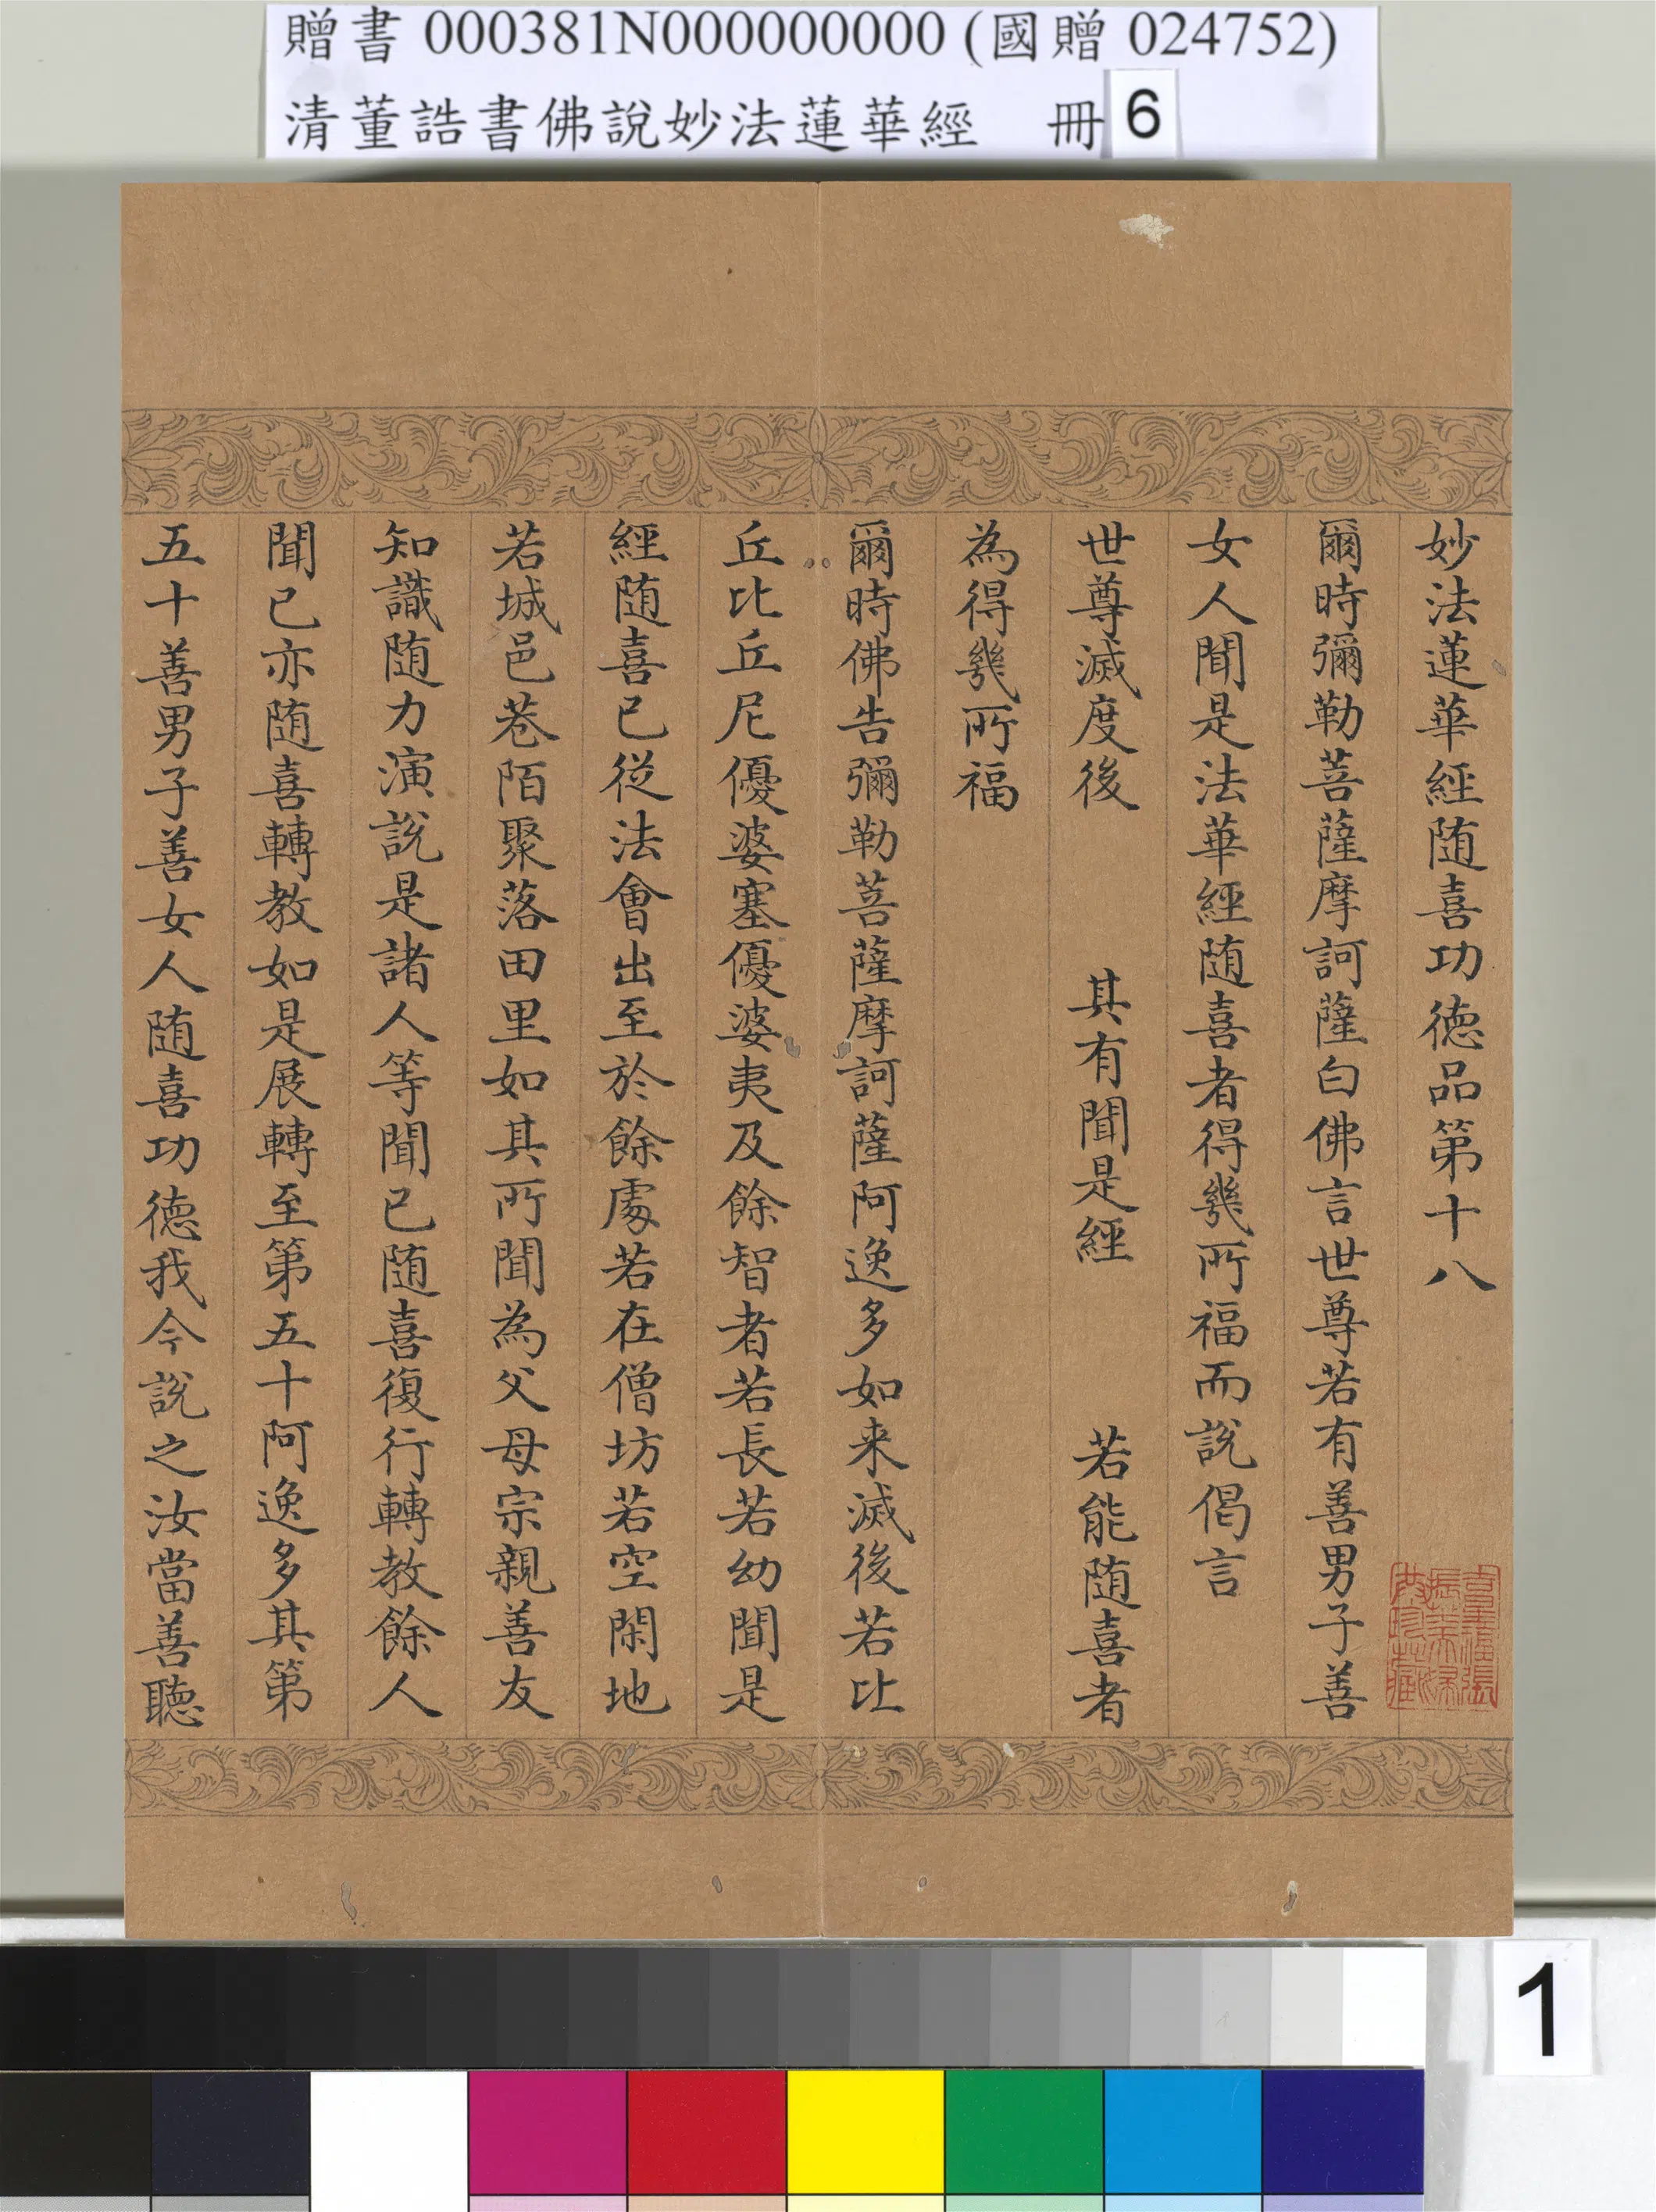 贈書 000381N000000000 (國贈 024752)
清董誥書佛說妙法蓮華經 冊6
妙法蓮華經随喜功德品第十八
爾時彌勒菩薩摩訶薩白佛言世尊若有善男子善
女人聞是法華經随喜者得幾所福而說偈言
世尊滅度後 其有聞是經 若能随喜者
為得幾所福
爾時佛告彌勒菩薩摩訶薩阿逸多如来滅後若比
丘比丘尼優婆塞優婆夷及餘智者若長若幼聞是
經随喜已從法會出至於餘處若在僧坊若空閑地
若城邑巷陌聚落田里如其所聞為父母宗親善友
知識随力演說是諸人等聞已随喜復行轉教餘人
聞已亦随喜轉教如是展轉至第五十阿逸多其第
五十善男子善女人随喜功德我今說之汝當善聽
1